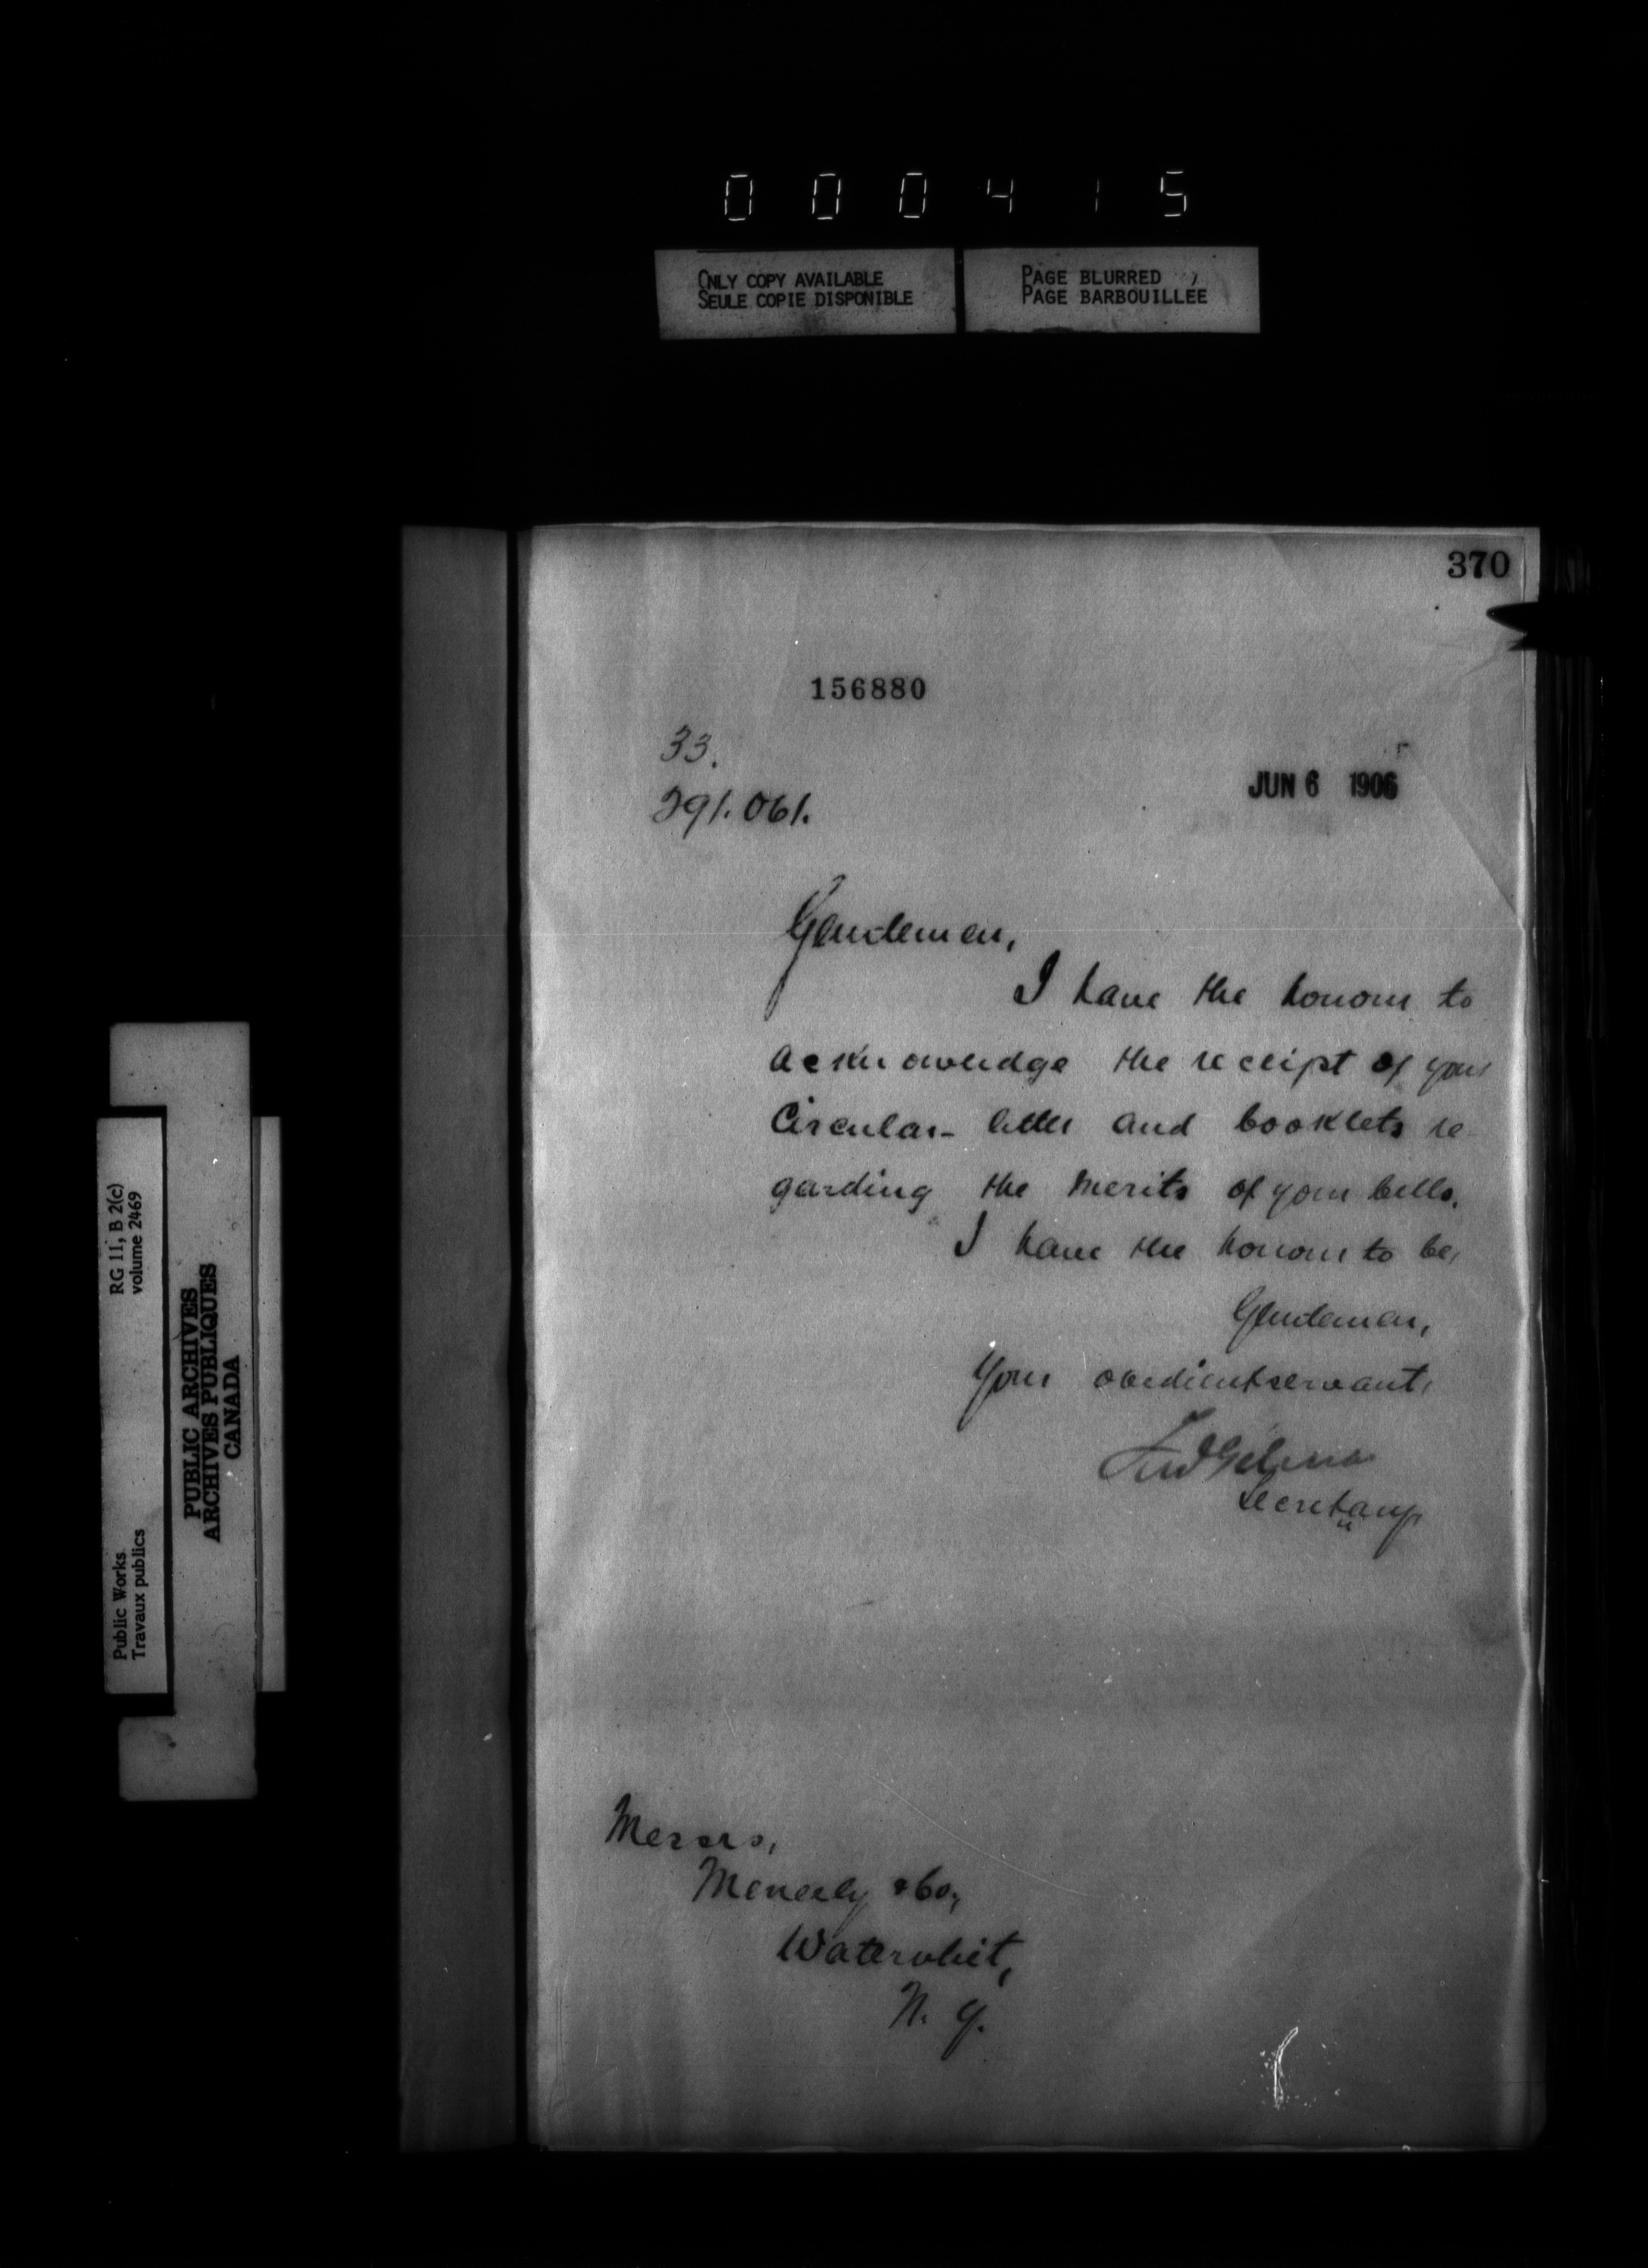 000415
ONLY COPY AVAILABLE
SEULE COPIE DISPONIBLE
PAGE BLURRED
PAGE BARBOUILLEE
370
156880
33.
291.061.
JUN 6 1906
Gentlemen,
I have the honour to
acknowledge the receipt of your
Circular-letter and booklets re
garding the merits of your bells.
I have the honour to be,
Gentlemen,
Your obedient servant,
Secretary
Messrs,
Meneely & Co,
Watervliet,
N. Y.
RG 11, B 2(c)
volume 2469
Public Works
Travaux publics
PUBLIC ARCHIVES
ARCHIVES PUBLIQUES
CANADA